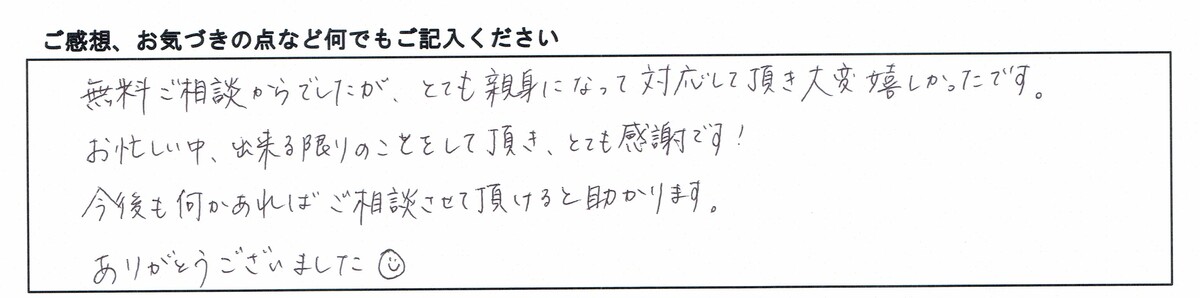 ご感想、お気づきの点など何でもご記入ください
無料ご相談からでしたが、とても親身になって対応して頂き大変嬉しかったです。
お忙しい中、出来る限りのことをして頂き、とても感謝です!
今後も何かあればご相談させて頂けると助かります。
ありがとうございました☺